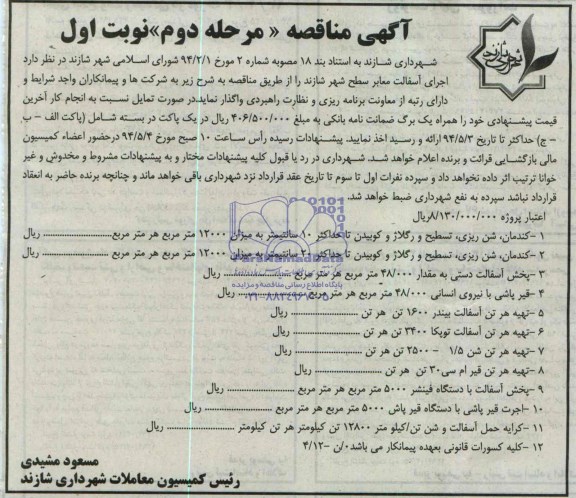 آگهی مناقصه « مرحله دوم»نوبت اول
شهرداری شازند به استناد بند ۱۸ مصوبه شماره ۲ مورخ ۹۴/۲/۱ شورای اسلامی شهر شازند در نظر دارد
اجرای آسفالت معابر سطح شهر شازند را از طریق مناقصه به شرح زیر به شرکت ها و پیمانکاران واجد شرایط و
دارای رتبه از معاونت برنامه ریزی و نظارت راهبردی واگذار نماید.در صورت تمایل نسبت به انجام کار آخرین
قیمت پیشنهادی خود را همراه یک برگ ضمانت نامه بانکی به مبلغ ۴۰۶/۵۰۰/۰۰۰ ریال در یک پاکت در بسته شامل (پاکت الف – ب
– ج) حداکثر تا تاریخ ۹۴/۵/۳ ارائه و رسید اخذ نمایید. پیشنهادات رسیده رأس ساعت ۱۰ صبح مورخ ۹۴/۵/۴ درحضور اعضاء کمیسیون
مالی بازگشایی قرائت و برنده اعلام خواهد شد. شهرداری در رد یا قبول کلیه پیشنهادات مختار و به پیشنهادات مشروط و مخدوش و غیر
خوانا ترتیب اثر داده نخواهد داد و سپرده نفرات اول تا سوم تا تاریخ عقد قرارداد نزد شهرداری باقی خواهد ماند و چنانچه برنده حاضر به انعقاد
قرارداد نباشد سپرده به نفع شهرداری ضبط خواهد شد.
اعتبار پروژه ۸/۱۳۰/۰۰۰/۰۰۰ریال
۱ –کندمان، شن ریزی، تسطیح و رگلاژ و کوبیدن تا حداکثر ۱۰ سانتیمتر به میزان ۱۲۰۰۰ متر مربع هر متر مربع .................... ریال
۲ –کندمان، شن ریزی، تسطیح و رگلاژ و کوبیدن تا حداکثر ۲۰ سانتیمتر به میزان ۱۲۰۰۰ متر مربع هر متر مربع .................... ریال
۳ –پخش آسفالت دستی به مقدار ۴۸/۰۰۰ متر مربع هر متر مربع .................... ریال
۴ –قیر پاشی با نیروی انسانی ۴۸/۰۰۰ متر مربع هر متر مربع .................... ریال
۵ –تهیه هر تن آسفالت بیندر ۱۶۰۰ تن هر تن .................... ریال
۶ –تهیه هر تن آسفالت توپکا ۳۴۰۰ تن هر تن .................... ریال
۷ –تهیه هر تن شن ۱/۵ – ۲۵۰۰ تن هر تن .................... ریال
۸ –تهیه هر تن قیر ام سی۳۰ تن هر تن .................... ریال
۹ –پخش آسفالت با دستگاه فینشر ۵۰۰۰ متر مربع هر متر مربع .................... ریال
۱۰ –اجرت قیر پاشی با دستگاه قیر پاش ۵۰۰۰ متر مربع هر متر مربع .................... ریال
۱۱ –کرایه حمل آسفالت و شن تن/کیلو متر ۱۲۸۰۰ تن کیلومتر هر تن کیلومتر .................... ریال
۱۲ –کلیه کسورات قانونی بعهده پیمانکار می باشد/۰ن –۴/۱۲
مسعود مشیدی
رئیس کمیسیون معاملات شهرداری شازند
پایگاه اطلاع رسانی مناقصه و مزایده